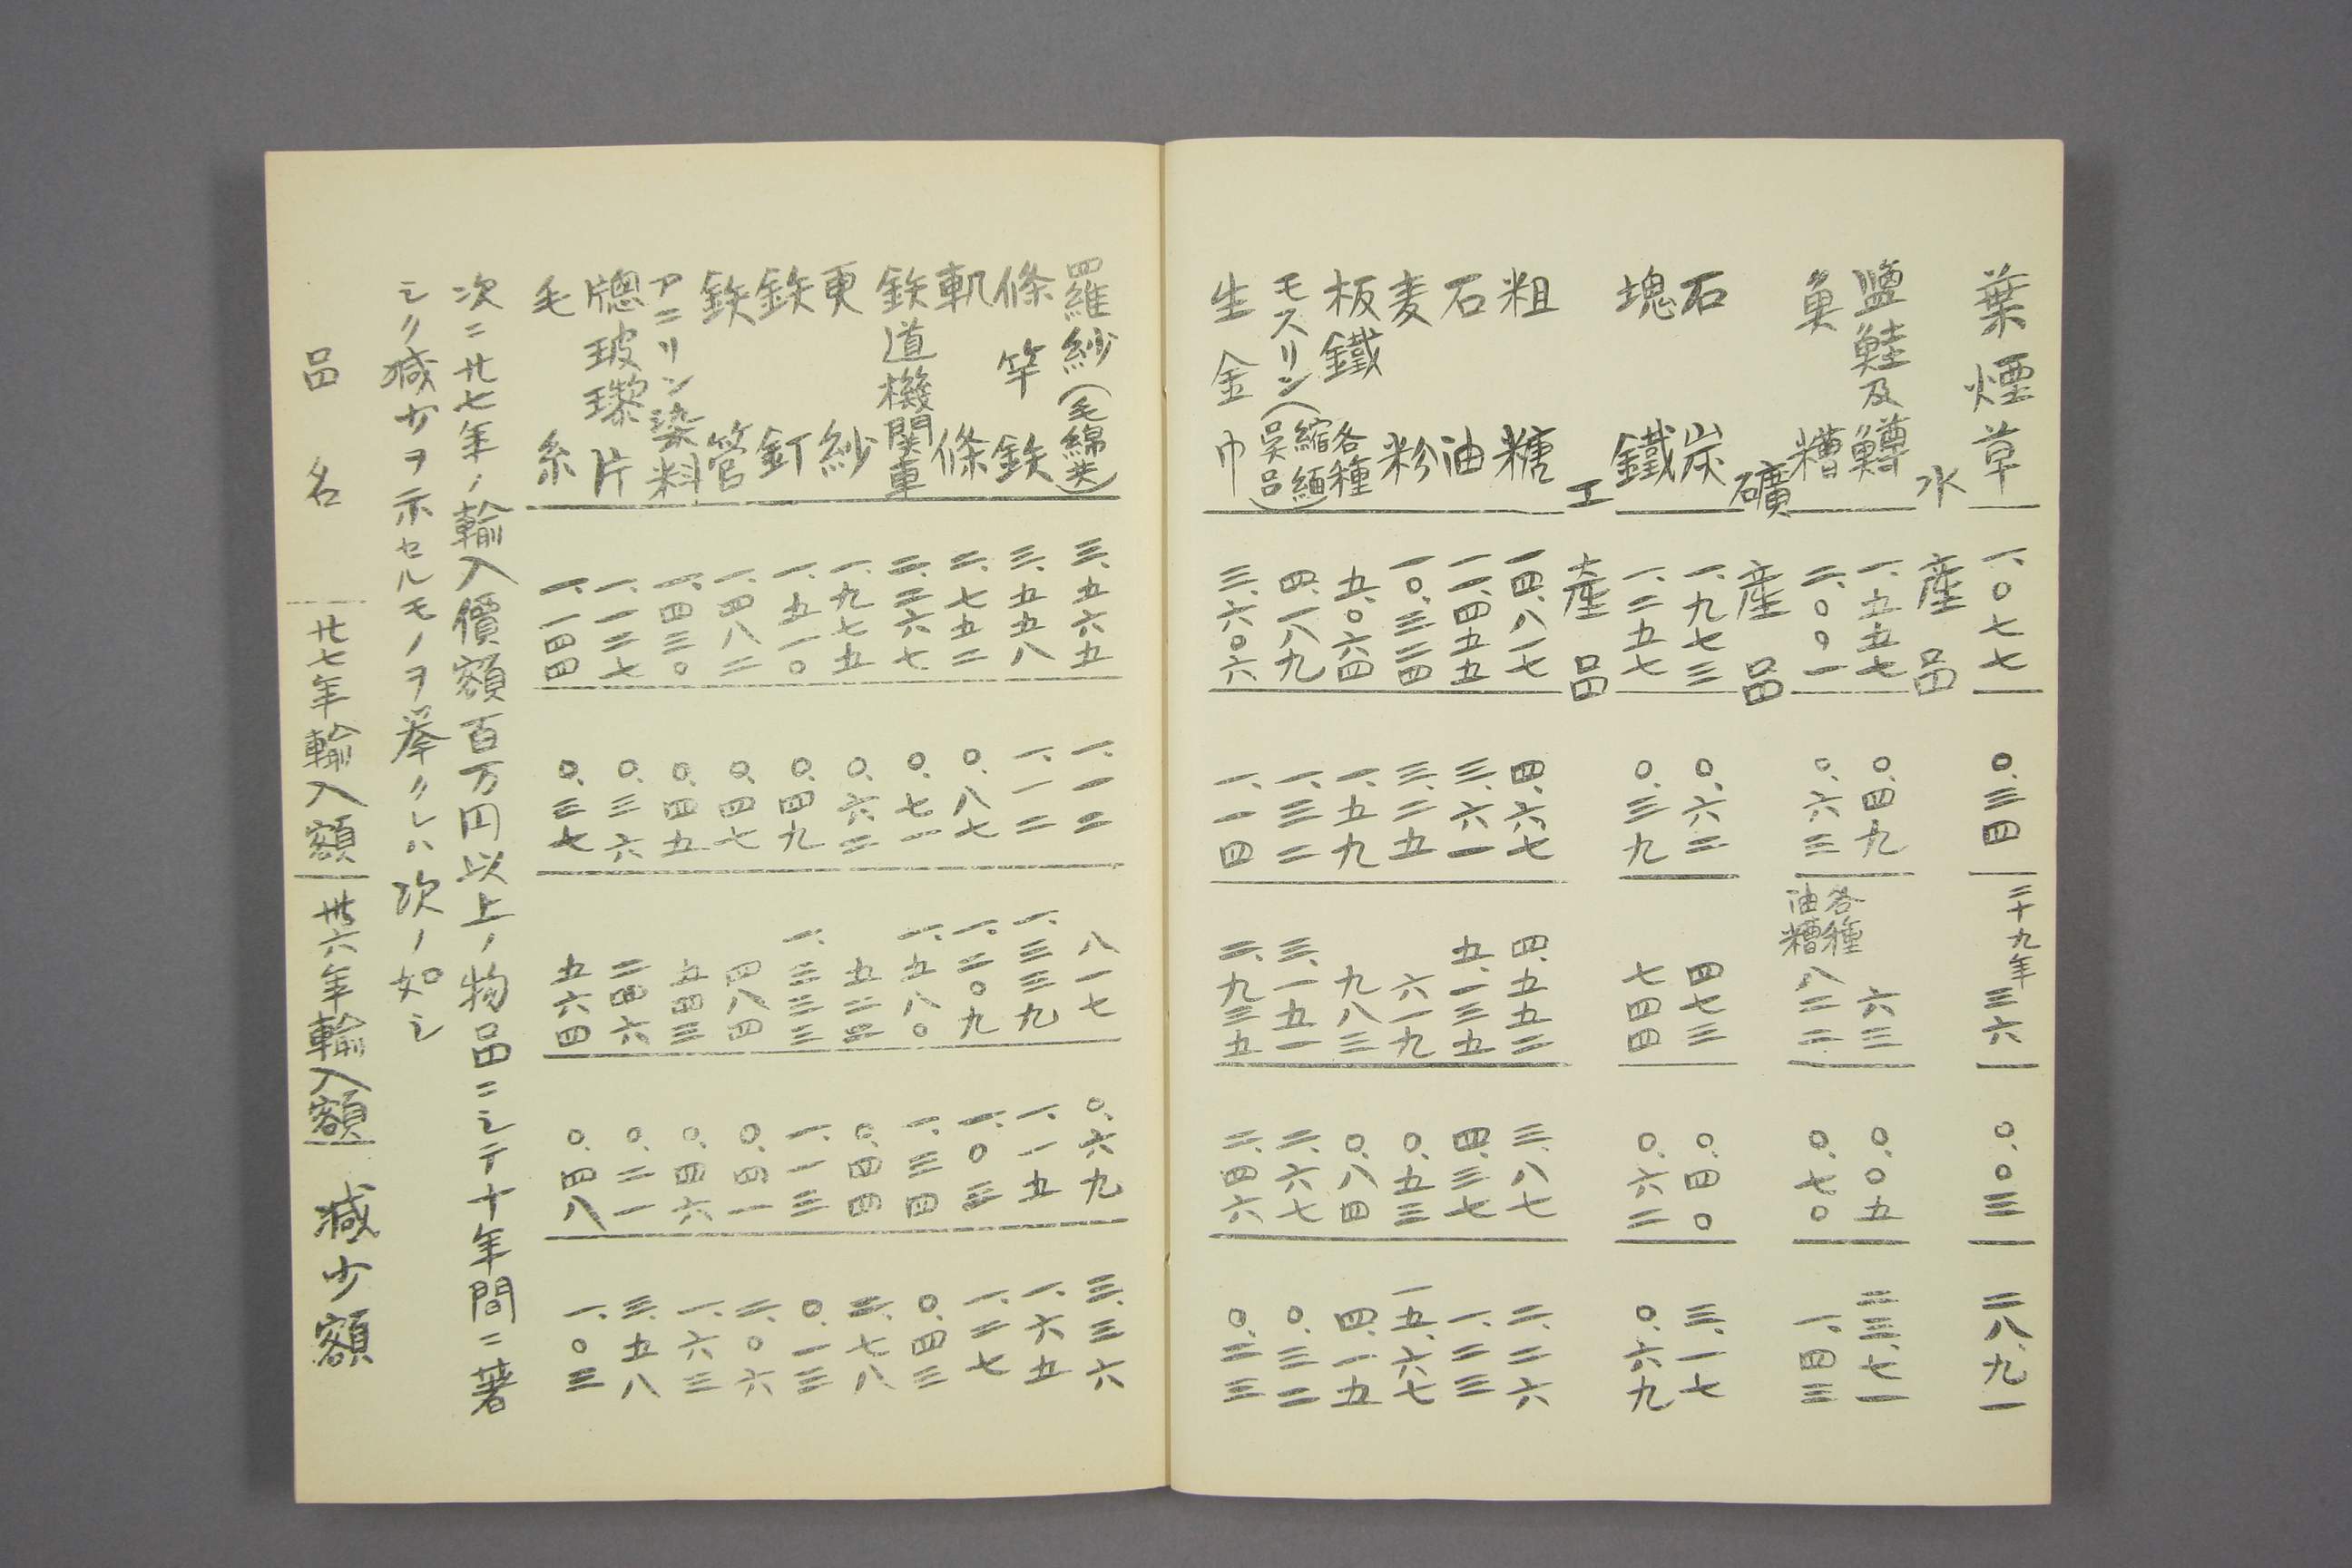 葉煙草 一、〇七七 〇、三四 三十九年 三六 〇、〇三 二八、九一
水産品
鹽鮭及鱒 一、五五七 〇、四九 六三 〇、〇五 二三、七一
魚糟 二、〇〇一 〇、六三 各種油糟 八二二 〇、七〇 一、四三
礦産品
石炭 一、九七三 〇、六二 四七三 〇、四〇 三、一七
塊鐵 一、二五七 〇、三九 七四四 〇、六二 〇、六九
工産品
粗糖 一四、八一七 四、六七 四、五五二 三、八七 二、二六
石油 一一、四五五 三、六一 五、一三五 四、三七 一、二三
麦粉 一〇、三二四 三、二五 六一九 〇、五三 一五、六七
板鐵各種 五、〇六四 一、五九 九八三 〇、八四 四、一五
モスリン(縮緬呉呂) 四、一八九 一、三二 三、一五一 二、六七 〇、三二
生金巾 三、六〇六 一、一四 二、九三五 二、四六 〇、二三
四羅紗(毛綿夾) 三、五六五 一、一二 八一七 〇、六九 三、三六
條竿鉄 三、五五八 一、一二 一、三三九 一、一五 一、六五
軌條 二、七五二 〇、八七 一、二〇九 一、〇三 一、二七
鉄道機関車 二、二六七 〇、七一 一、五八〇 一、三四 〇、四三
更紗 一、九七五 〇、六二 五二二 〇、四四 二、七八
鉄釘 一、五一〇 〇、四九 一、三三三 一、一三 〇、一三
鉄管 一、四八二 〇、四七 四八四 〇、四一 二、〇六
アニリン染料 一、四三〇 〇、四五 五四三 〇、四六 一、六三
牕玻瓈片 一、一二七 〇、三六 二四六 〇、二一 三、五八
毛糸 一、一四四 〇、三七 五六四 〇、四八 一、〇三
次ニ廿七年ノ輸入價額百万円以上ノ物品ニシテ十年間ニ著
シク減少ヲ示セルモノヲ挙クレハ次ノ如シ
品名 廿七年輸入額 卅六年輸入額 減少額